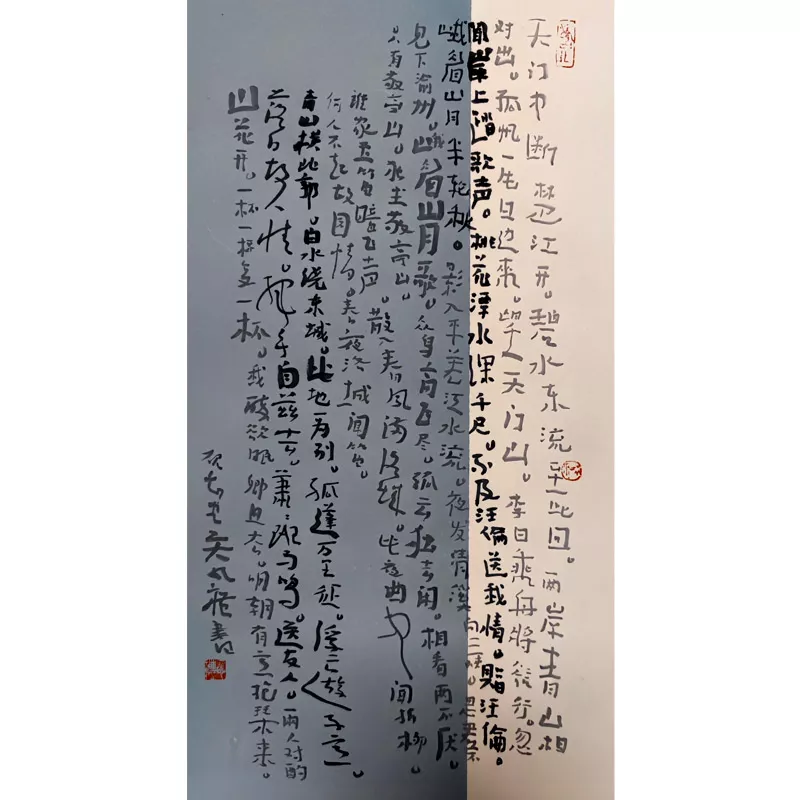 天门中断楚江开。碧水东流至此回。两岸青山相
对出。孤帆一片日边来。望天门山。李白乘舟将欲行。忽
闻岸上踏歌声。桃花潭水深千尺。不及汪倫送我情。赠汪倫。
峨眉山月半轮秋。影入平羌江水流。夜发清溪向三峡。思君不
见下渝州。峨眉山月歌。众鸟高飞尽。孤云独去闲。相看两不厌。
只有敬亭山。独坐敬亭山。
谁家玉笛暗飞声。散入春风满洛城。此夜曲中闻折柳。
何人不起故园情。春夜洛城闻笛。
青山横北郭。白水绕东城。此地一为别。孤蓬万里征。浮云游子意。
落日故人情。挥手自兹去。萧萧班马鸣。送友人。两人对酌
山花开。一杯一杯复一杯。我醉欲眠卿且去。明朝有意抱琴来。
書